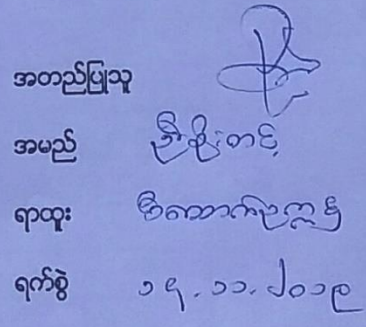 အတည်ပြုသူ
အမည် ဦးစိုးတင့်
ရာထူး ဒီ
ရက်စွဲ ၁၄.၁၁.၂၀၁၉